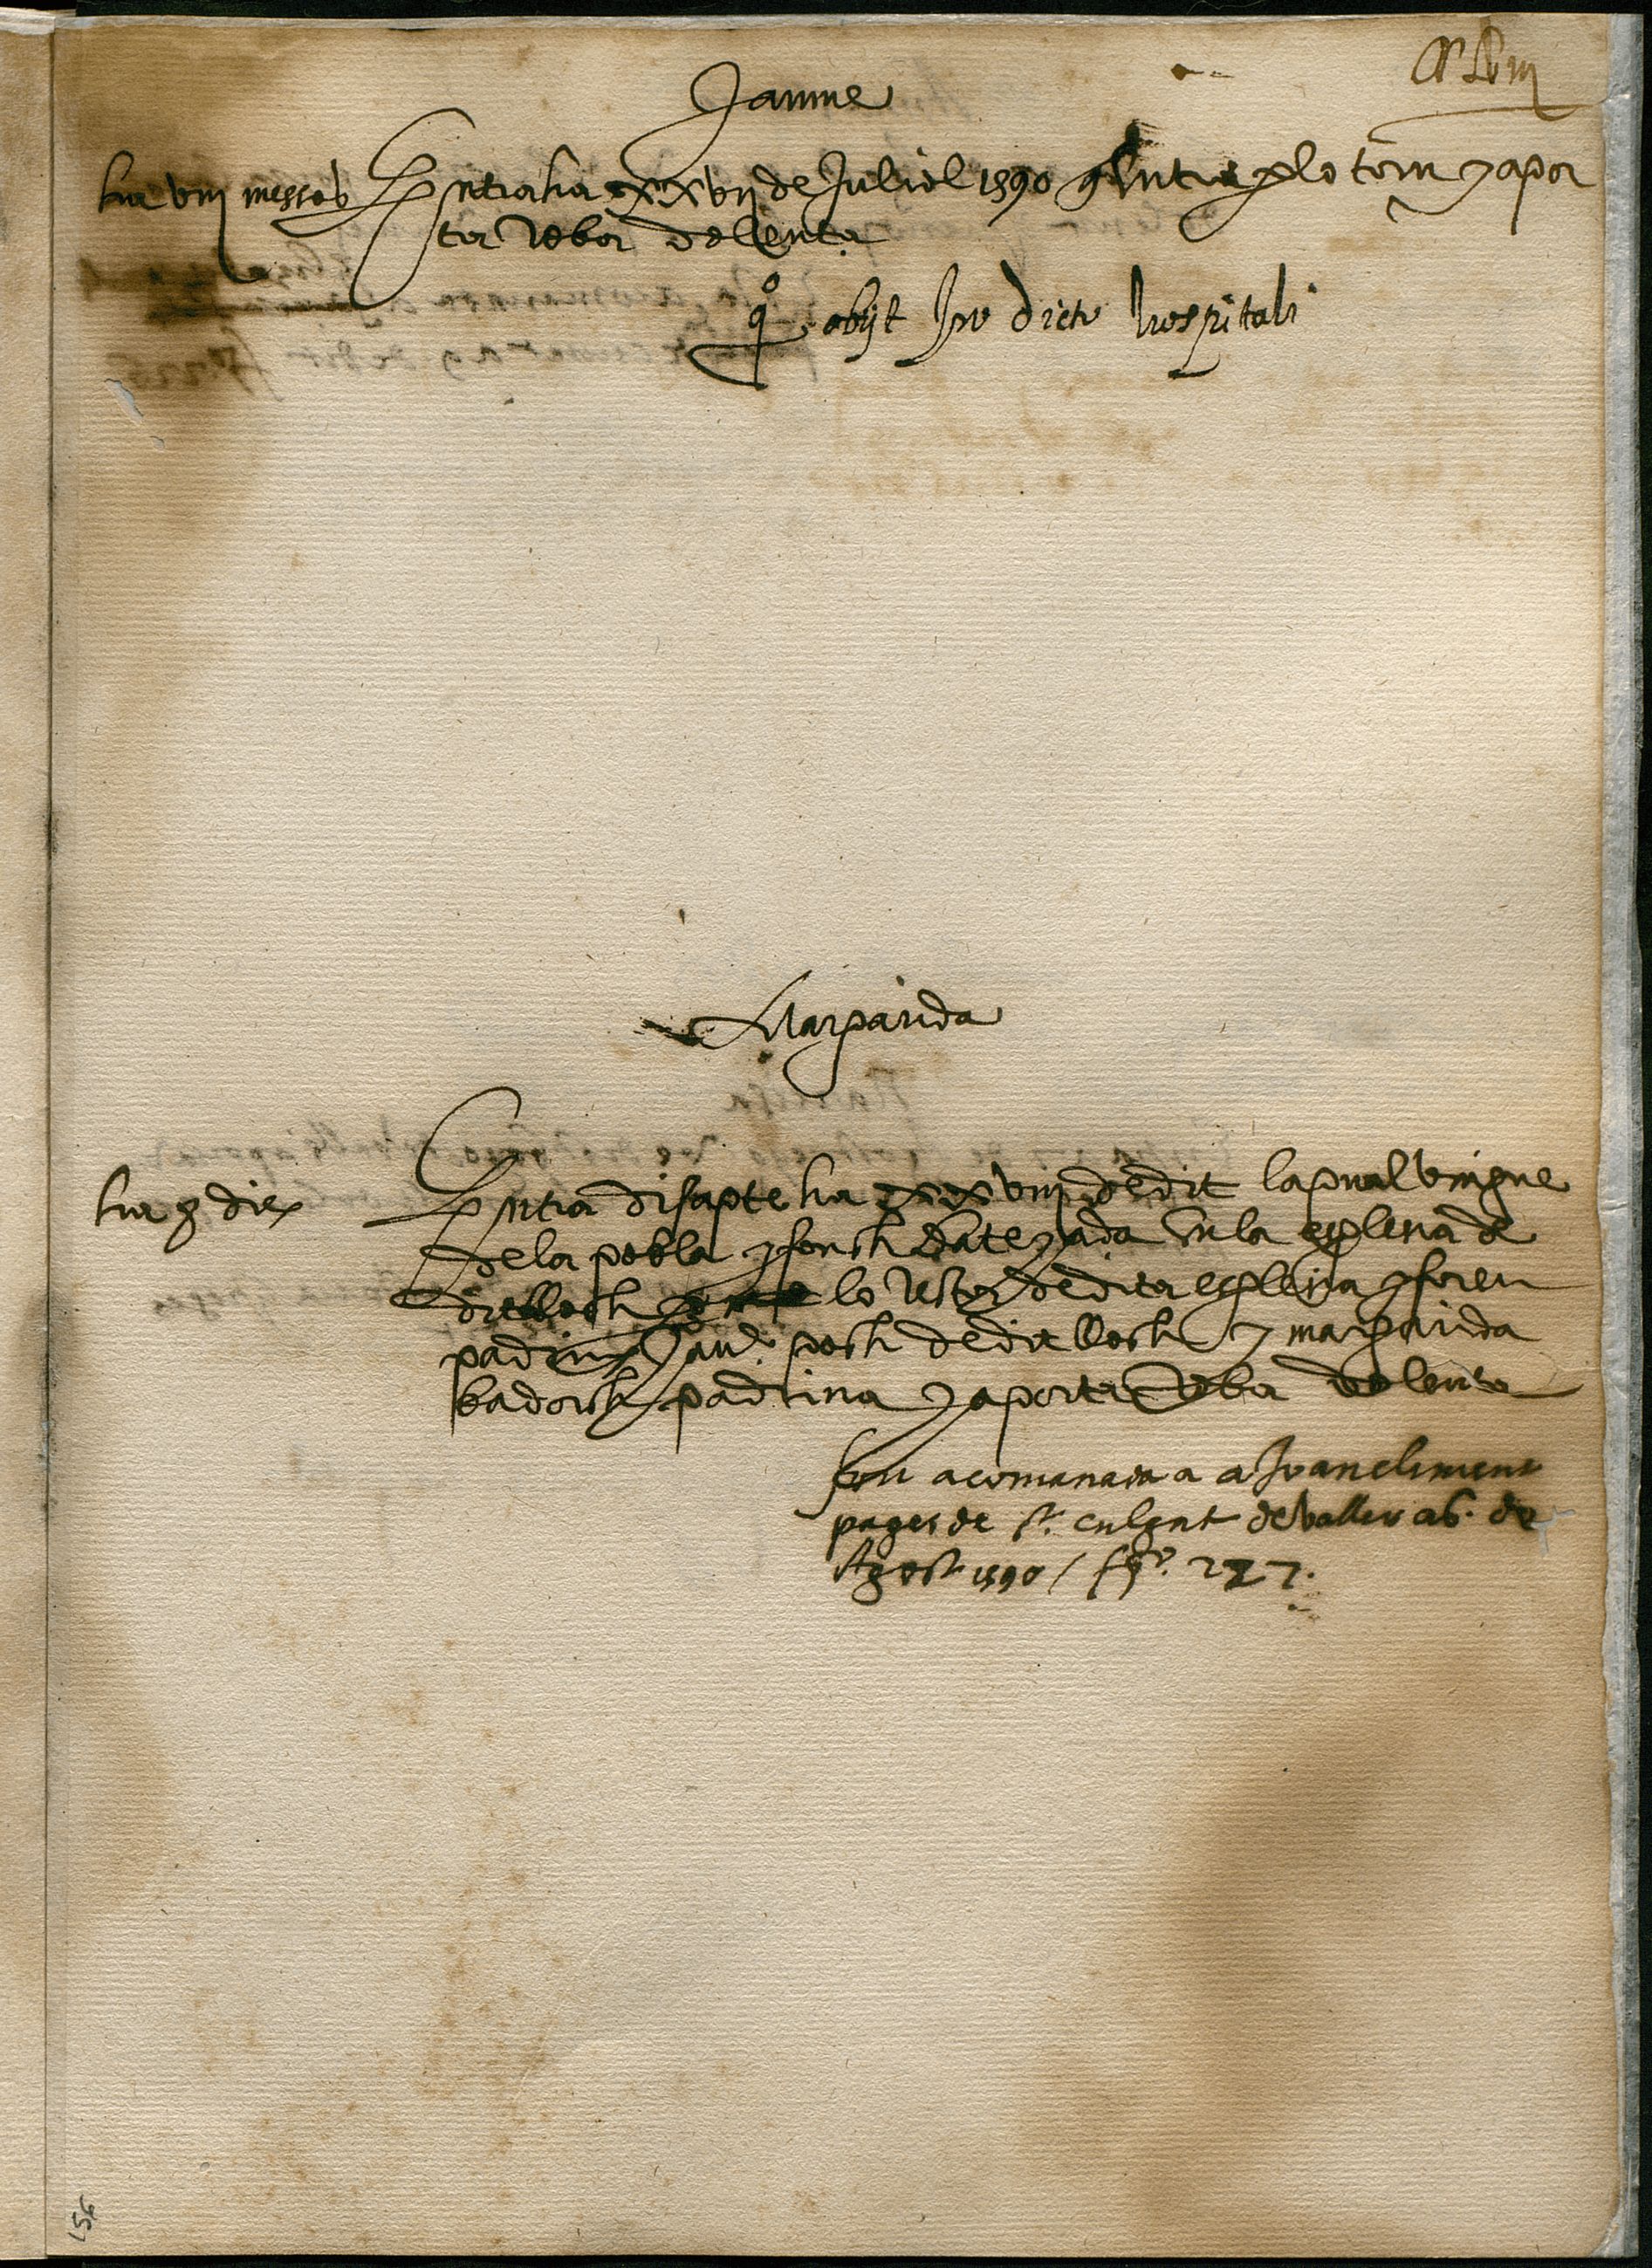 Jaume
ha viii messos Entra ha xxvii de Juliol 1590 y entra per lo torn y apor
ta roba dolenta
obijt in dicto hospitali
Margarida
ha 3 dies Entra disapte ha xxviii de dit la qual vingue
de la pobla y fonch batejada en la esglesia de
dit lloch lo rector de dita esglesia y foren
padrins Jau. poch de dit lloch y margarida
badorch padrina y aporta roba dolenta
fou acomanada a Joan climent
pages de St. culgat de valles a 6. de
Agost 1590 / 227.
156